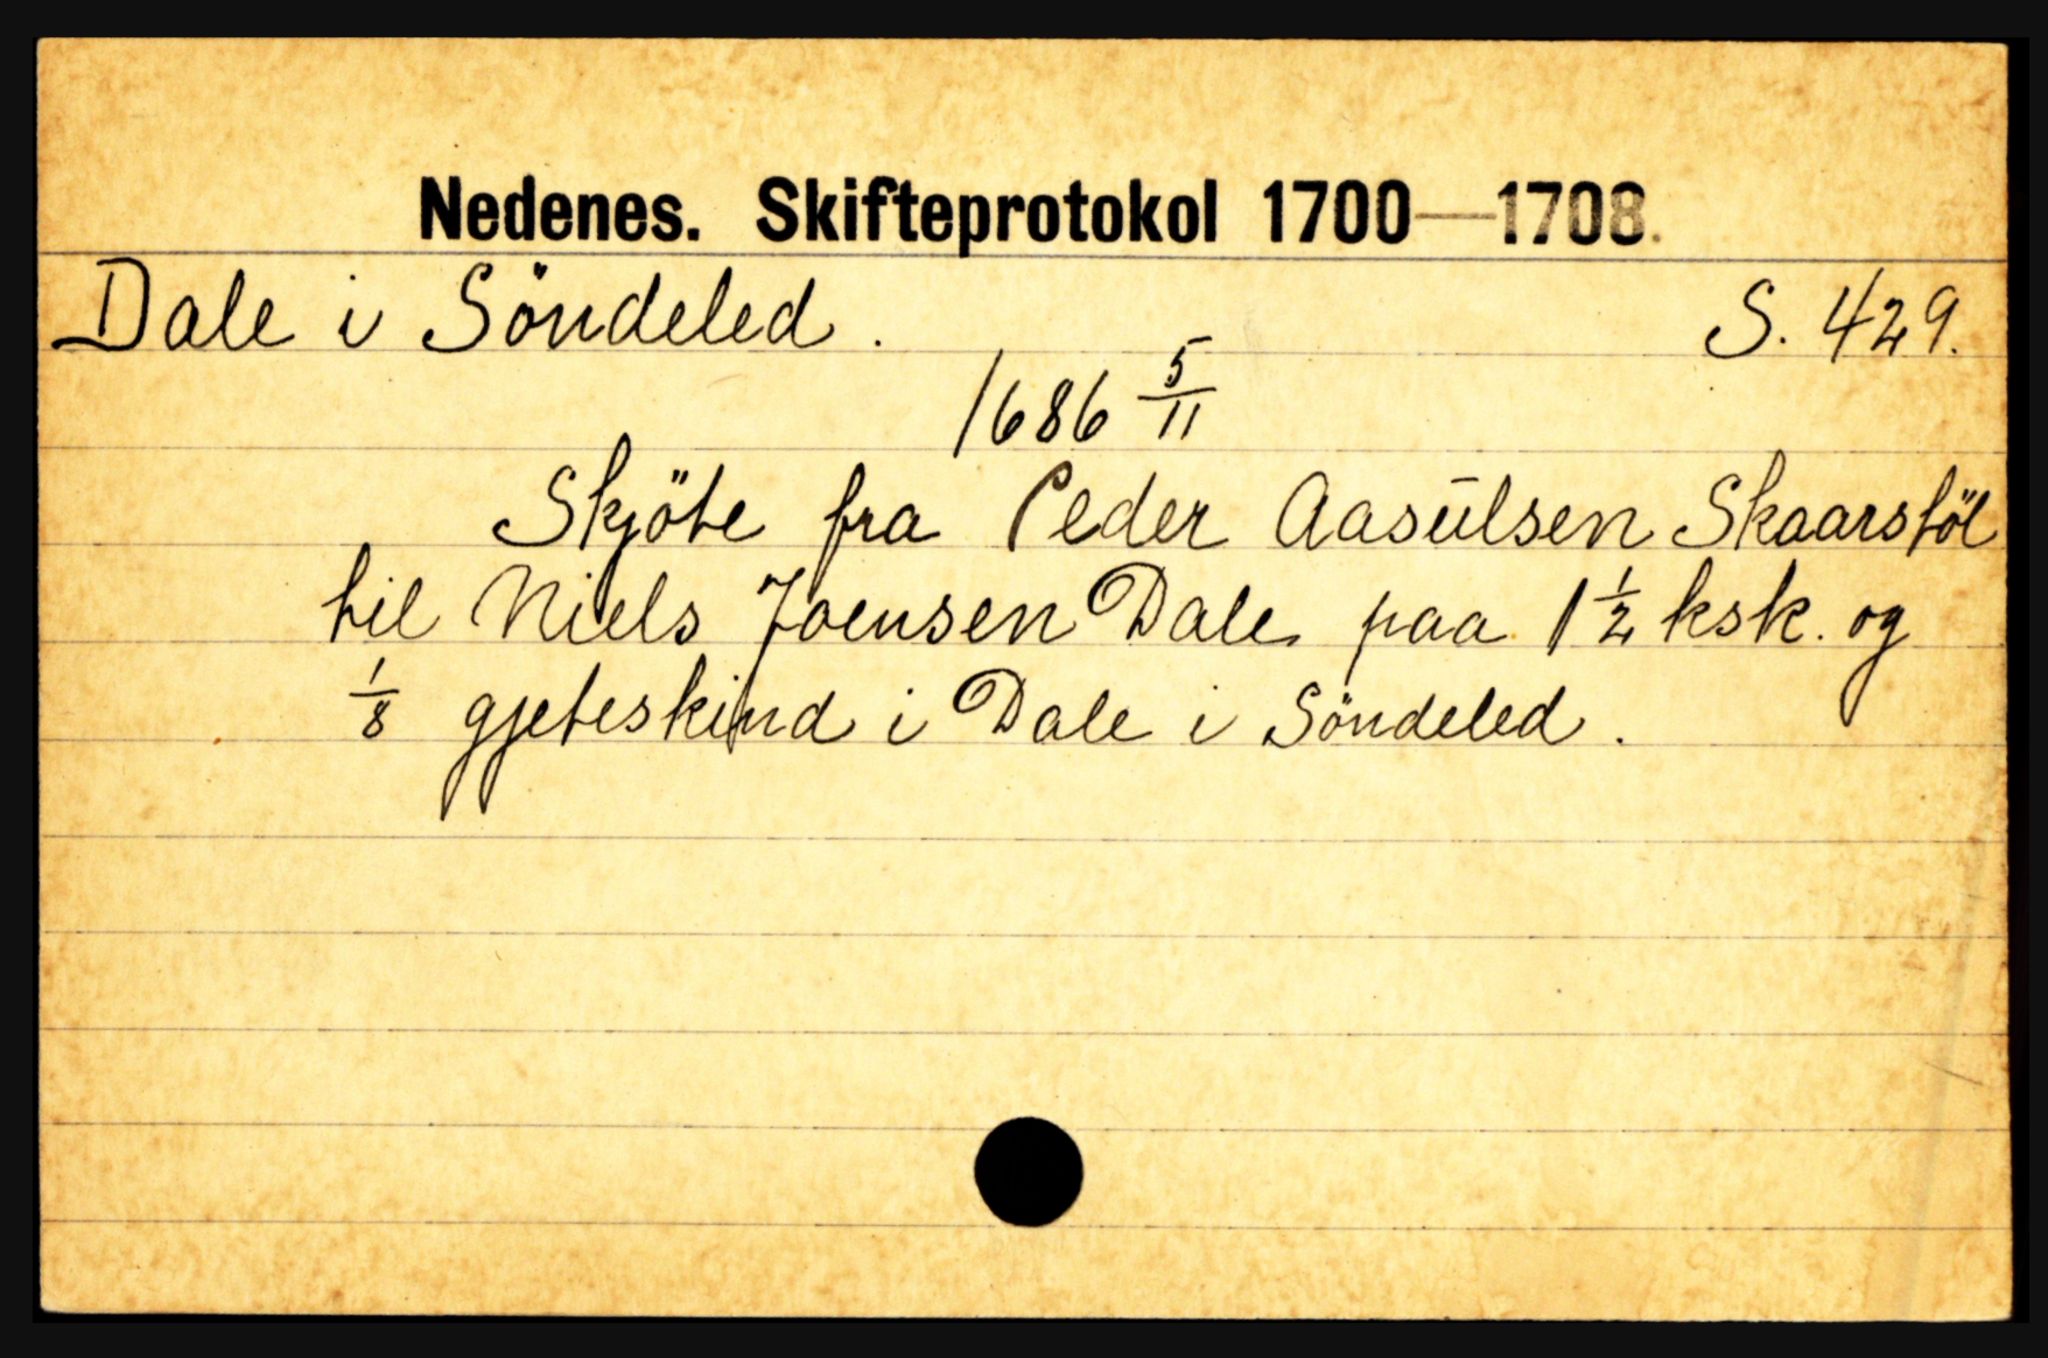 Nedenes. Skifteprotokol 1700—1708.
Dale i Söndeled. S. 429.
1686 5/11
Skjöte fra Peder Aasulsen Skaarstöl
til Niels Joensen Dale paa 1 1/2 ksk. og
1/8 gjeteskind i Dale i Söndeled.